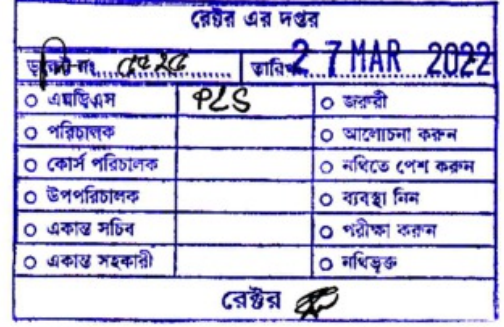 রেক্টর এর দপ্তর
ডকেট নং তারিখ 27 MAR 2022
০ এমডিএস PLS ০ জরুরী
০ পরিচালক ০ আলোচনা করুন
০ কোর্স পরিচালক ০ নথিতে পেশ করুন
০ উপপরিচালক ০ ব্যবস্থা নিন
০ একান্ত সচিব ০ পরীক্ষা করুন
০ একান্ত সহকারী ০ নথিভুক্ত
রেক্টর